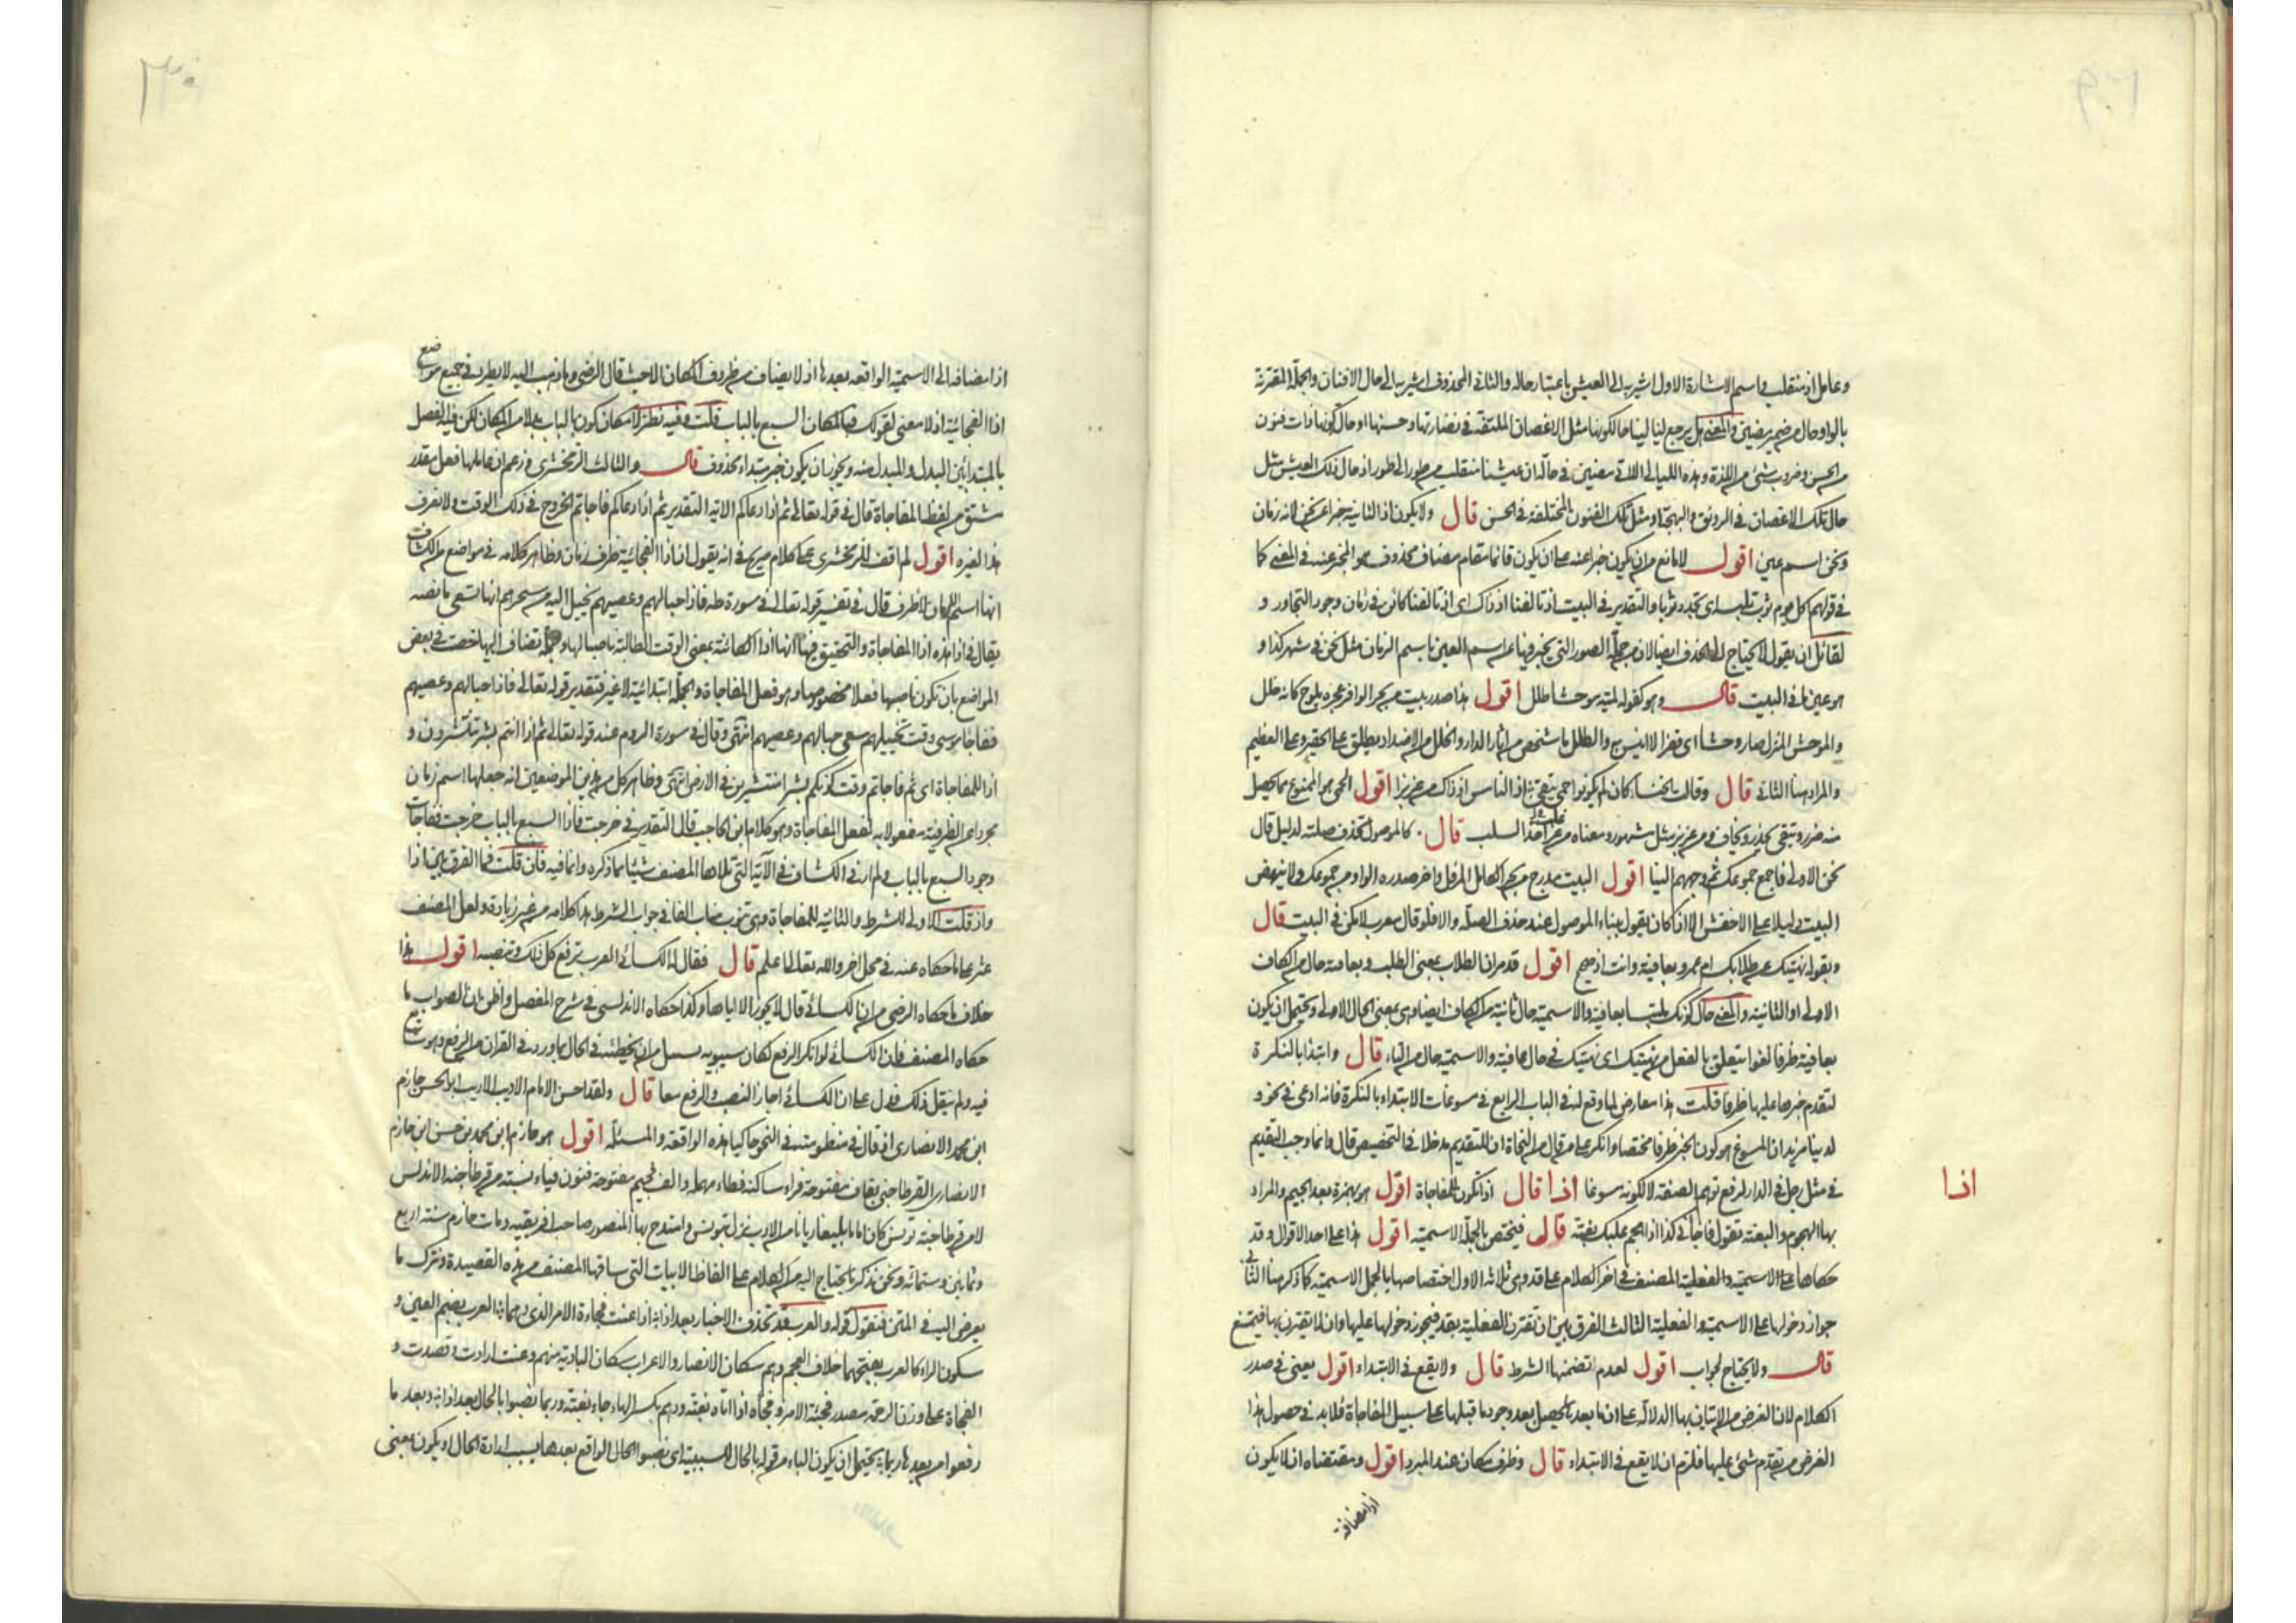 وعامل اذ منقلب واسم الاشارة الاول اشير به الى العيش باعتبار حاله والثاني المحذوف اشير به الى حال الافنان والجملة المقترنة
بالواو حال من ضمير يمضين والمعنى هل يرجع لنا ليالينا حال كونها مثل الاغصان الملتفة في نضارتها وحسنها او حال كونها ذات فنون
من الحسن وضروب شتى من اللذة وهذه الليالي اللاتي مضين في حال ان عيشنا منقلب من طور الى طور اذ حال ذلك العيش مثل
حال تلك الاغصان في الرونق والبهجة او مثل تلك الفنون المختلفة في الحسن قال ولا يكون اذ الثانية خبرا عن نحن لانه زمان
ونحن اسم عين اقول لا مانع من ان يكون خبرا عنه على ان يكون قائما مقام مضاف محذوف هو المخبر عنه في المعنى كما
في قولهم كل يوم ثوب تلبسه اى تجدد ثوب والتقدير في البيت اذ تالفنا اذ ذاك اى اذ تالفنا كائن في زمان وجود التجاور و
لقائل ان يقول لا يحتاج الى الحذف ايضا لان من جملة الصور التي يخبر فيها عن اسم العين باسم الزمان مثل نحن في شهر كذا و
هو عين ما في البيت قال وهو كقوله لمية موحشا طلل اقول هذا صدر بيت من بحر الوافر عجزه يلوح كانه خلل
والموحش المنزل صار وحشا اى قفرا لا انيس به والطلل ما شخص من آثار الدار والجلل من الاضداد يطلق على الحقير وعلى العظيم
والمراد هنا الثاني قال وقالت الخنساء كان لم يكونوا حمى يتقى اذ الناس اذ ذاك من عز بزا اقول الحمى هو الممنوع مما يحصل
منه ضرر ويتقى يحذر ويخاف ومن عز بز مثل مشهور ومعناه من غلب اخذ السلب قال كالموصول تحذف صلته لدليل قال
نحن الاولى فاجمع جموعك ثم وجههم الينا اقول البيت مدرج من بحر الكامل المرفل وآخر صدره الواو من جموعك ولا ينهض
البيت دليلا على الاخفش الا اذا كان يقول ببناء الموصول عند حذف الصلة والا فلو قال معرب لامكن في البيت قال
وبقوله نهيتك عن طلابك ام عمرو بعافية وانت اذ صحيح اقول قد مر ان الطلاب بمعنى الطلب وبعافية حال من الكاف
الاولى او الثانية والمعنى حال كونك ملتبسا بعافية والاسمية حال ثانية من الكاف ايضا وهى بمعنى الحال الاولى ويحتمل ان يكون
بعافية ظرفا لغوا يتعلق بالفعل من نهيتك اى نهيتك في حال عافية والاسمية حال من التاء قال وابتدا بالنكرة
لتقدم خبرها عليها ظرفا قلت هذا معارض لما وقع له في الباب الرابع في مسوغات الابتداء بالنكرة فانه ادعى في نحو و
لدينا مزيد ان المسوغ هو كون الخبر ظرفا مختصا وانكر على من قال من النحاة ان للتقديم مدخلا في التخصيص قال وانما وجب التقديم
في مثل رجل في الدار لرفع توهم الصفة لا لكونه مسوغا اذا قال اذا تكون للمفاجاة اقول هو بهمزة بعد الجيم والمراد
اذا
بها الهجوم والبغتة تقول فاجاني كذا اذا هجم عليك بغتة قال فيختص بالجملة الاسمية اقول هذا على احد الاقوال وقد
حكاها على الاسمية والفعلية المصنف في آخر الكلام على قد وهى ثلاثة الاول اختصاصها بالجمل الاسمية كما ذكر هنا الثاني
جواز دخولها على الاسمية والفعلية الثالث الفرق بين ان تقترن الفعلية بقد فيجوز دخولها عليها وان لا تقترن بها فيمتنع
قال ولا يحتاج لجواب اقول لعدم تضمنها الشرط قال ولا يقع في الابتداء اقول يعنى في صدر
الكلام لان الغرض من الاتيان بها الدلالة على ان ما بعدها يحصل بعد وجود ما قبلها على سبيل المفاجاة فلا بد في حصول هذا
الغرض من تقدم شئ عليها فلزم ان لا يقع في الابتداء قال وظرف مكان عند المبرد اقول ومقتضاه ان لا يكون
اذا مضافة
اذا مضافة الى الاسمية الواقعة بعدها اذ لا يضاف من ظروف المكان الا حيث قال الرضى وما ذهب اليه لا يطرد في جميع مواضع
اذا الفجائية اذ لا معنى لقولك فبالمكان السبع بالباب قلت وفيه نظر لامكان كون بالباب بدلا من المكان لكن فيه الفصل
بالمبتدا بين البدل والمبدل منه ويجوز ان يكون خبر مبتداء محذوف قال والثالث الزمخشرى وزعم ان عاملها فعل مقدر
مشتق من لفظ المفاجاة قال في قوله تعالى ثم اذا دعاكم الآية التقدير ثم اذا دعاكم فاجأتم الخروج في ذلك الوقت ولا نعرف
هذا لغيره اقول لم اقف للزمخشرى على كلام صريح في انه يقول ان اذا الفجائية ظرف زمان وظاهر كلامه في مواضع من الكشاف
انها اسم للزمان لا ظرف قال في تفسير قوله تعالى في سورة طه فاذا حبالهم وعصيهم يخيل اليه من سحرهم انها تسعى ما نصه
يقال في اذا هذه اذا المفاجاة والتحقيق فيها انها اذا الكائنة بمعنى الوقت الطالبة ناصبا لها وجملة تضاف اليها خصت في بعض
المواضع بان تكون ناصبها فعلا مخصوصا وهو فعل المفاجاة والجملة ابتدائية لا غير فتقدير قوله تعالى فاذا حبالهم وعصيهم
ففاجأ موسى وقت تخييلهم سعى حبالهم وعصيهم انتهى وقال في سورة الروم عند قوله تعالى ثم اذا انتم بشر تنتشرون و
اذا للمفاجاة اى ثم فاجأتم وقت كونكم بشرا منتشرين في الارض انتهى وظاهر كل من هذين الموضعين انه جعلها اسم زمان
مجردا عن الظرفية مفعولا به لفعل المفاجاة وهو كلام ابن الحاجب قال التقدير في خرجت فاذا السبع بالباب خرجت ففاجأت
وجود السبع بالباب ولم ار في الكشاف في الآية التي تلاها المصنف شيئا مما ذكره وانما فيه فان قلت فما الفرق بين اذا
واذ قلت الاولى للشرط والثانية للمفاجاة وهى تنوب مناب الفا في جواب الشرط هذا كلامه من غير زيادة ولعل المصنف
عثر على ما حكاه عنه في محل آخر والله تعالى اعلم قال فقال له الكسائى العرب ترفع كل ذلك وتنصبه اقول هذا
خلاف ما حكاه الرضى من ان الكسائى قال لا يجوز الا اياها وكذا حكاه الاندلسى في شرح المفصل واظن ان الصواب ما
حكاه المصنف فان الكسائى لو انكر الرفع لكان سيبويه بسبيل من ان يخطئه في الحال بما ورد في القرآن من الرفع وهو
فيه ولم ينقل ذلك فدل على ان الكسائى اجاز النصب والرفع معا قال ولقد احسن الامام الاديب الاريب ابو الحسن حازم
ابن محمد الانصارى اذ قال في منظومته في النحو حاكيا هذه الواقعة والمسئلة اقول هو حازم ابن محمد بن حسن ابن حازم
الانصارى القرطاجنى بقاف مفتوحة فراء ساكنة فطاء مهملة والف فجيم مفتوحة فنون فياء نسبة من قرطاجنة الاندلس
لا من قرطاجنة تونس كان اماما بليغا ريانا من الادب نزل بتونس وامتدح بها المنصور صاحب افريقية ومات حازم سنة اربع
وثمانين وستمائة ونحن نذكر ما يحتاج اليه من الكلام على الفاظ الابيات التي ساقها المصنف من هذه القصيدة ونترك ما
يعرض اليه في المتن فنقول قوله والعرب قد تحذف الاخبار بعد اذا اذا عنت فجاءة الامر الذى دهما العرب بضم العين و
سكون الراء كالعرب بفتحهما خلاف العجم وهم سكان الامصار والاعراب سكان البادية منهم وعنت ارادت وقصدت و
الفجاة على وزن الرحمة مصدر فجئه الامر وفجأه اذا اتاه بغتة ودهم بكسر الهاء جاء بغتة وربما نصبوا بالحال بعد اذا وبعد ما
رفعوا من بعدها ربما يحتمل ان يكون الباء من قوله بالحال للسببية اى نصبوا الحال الواقع بعدها بسبب ارادة الحال او يكون بمعنى